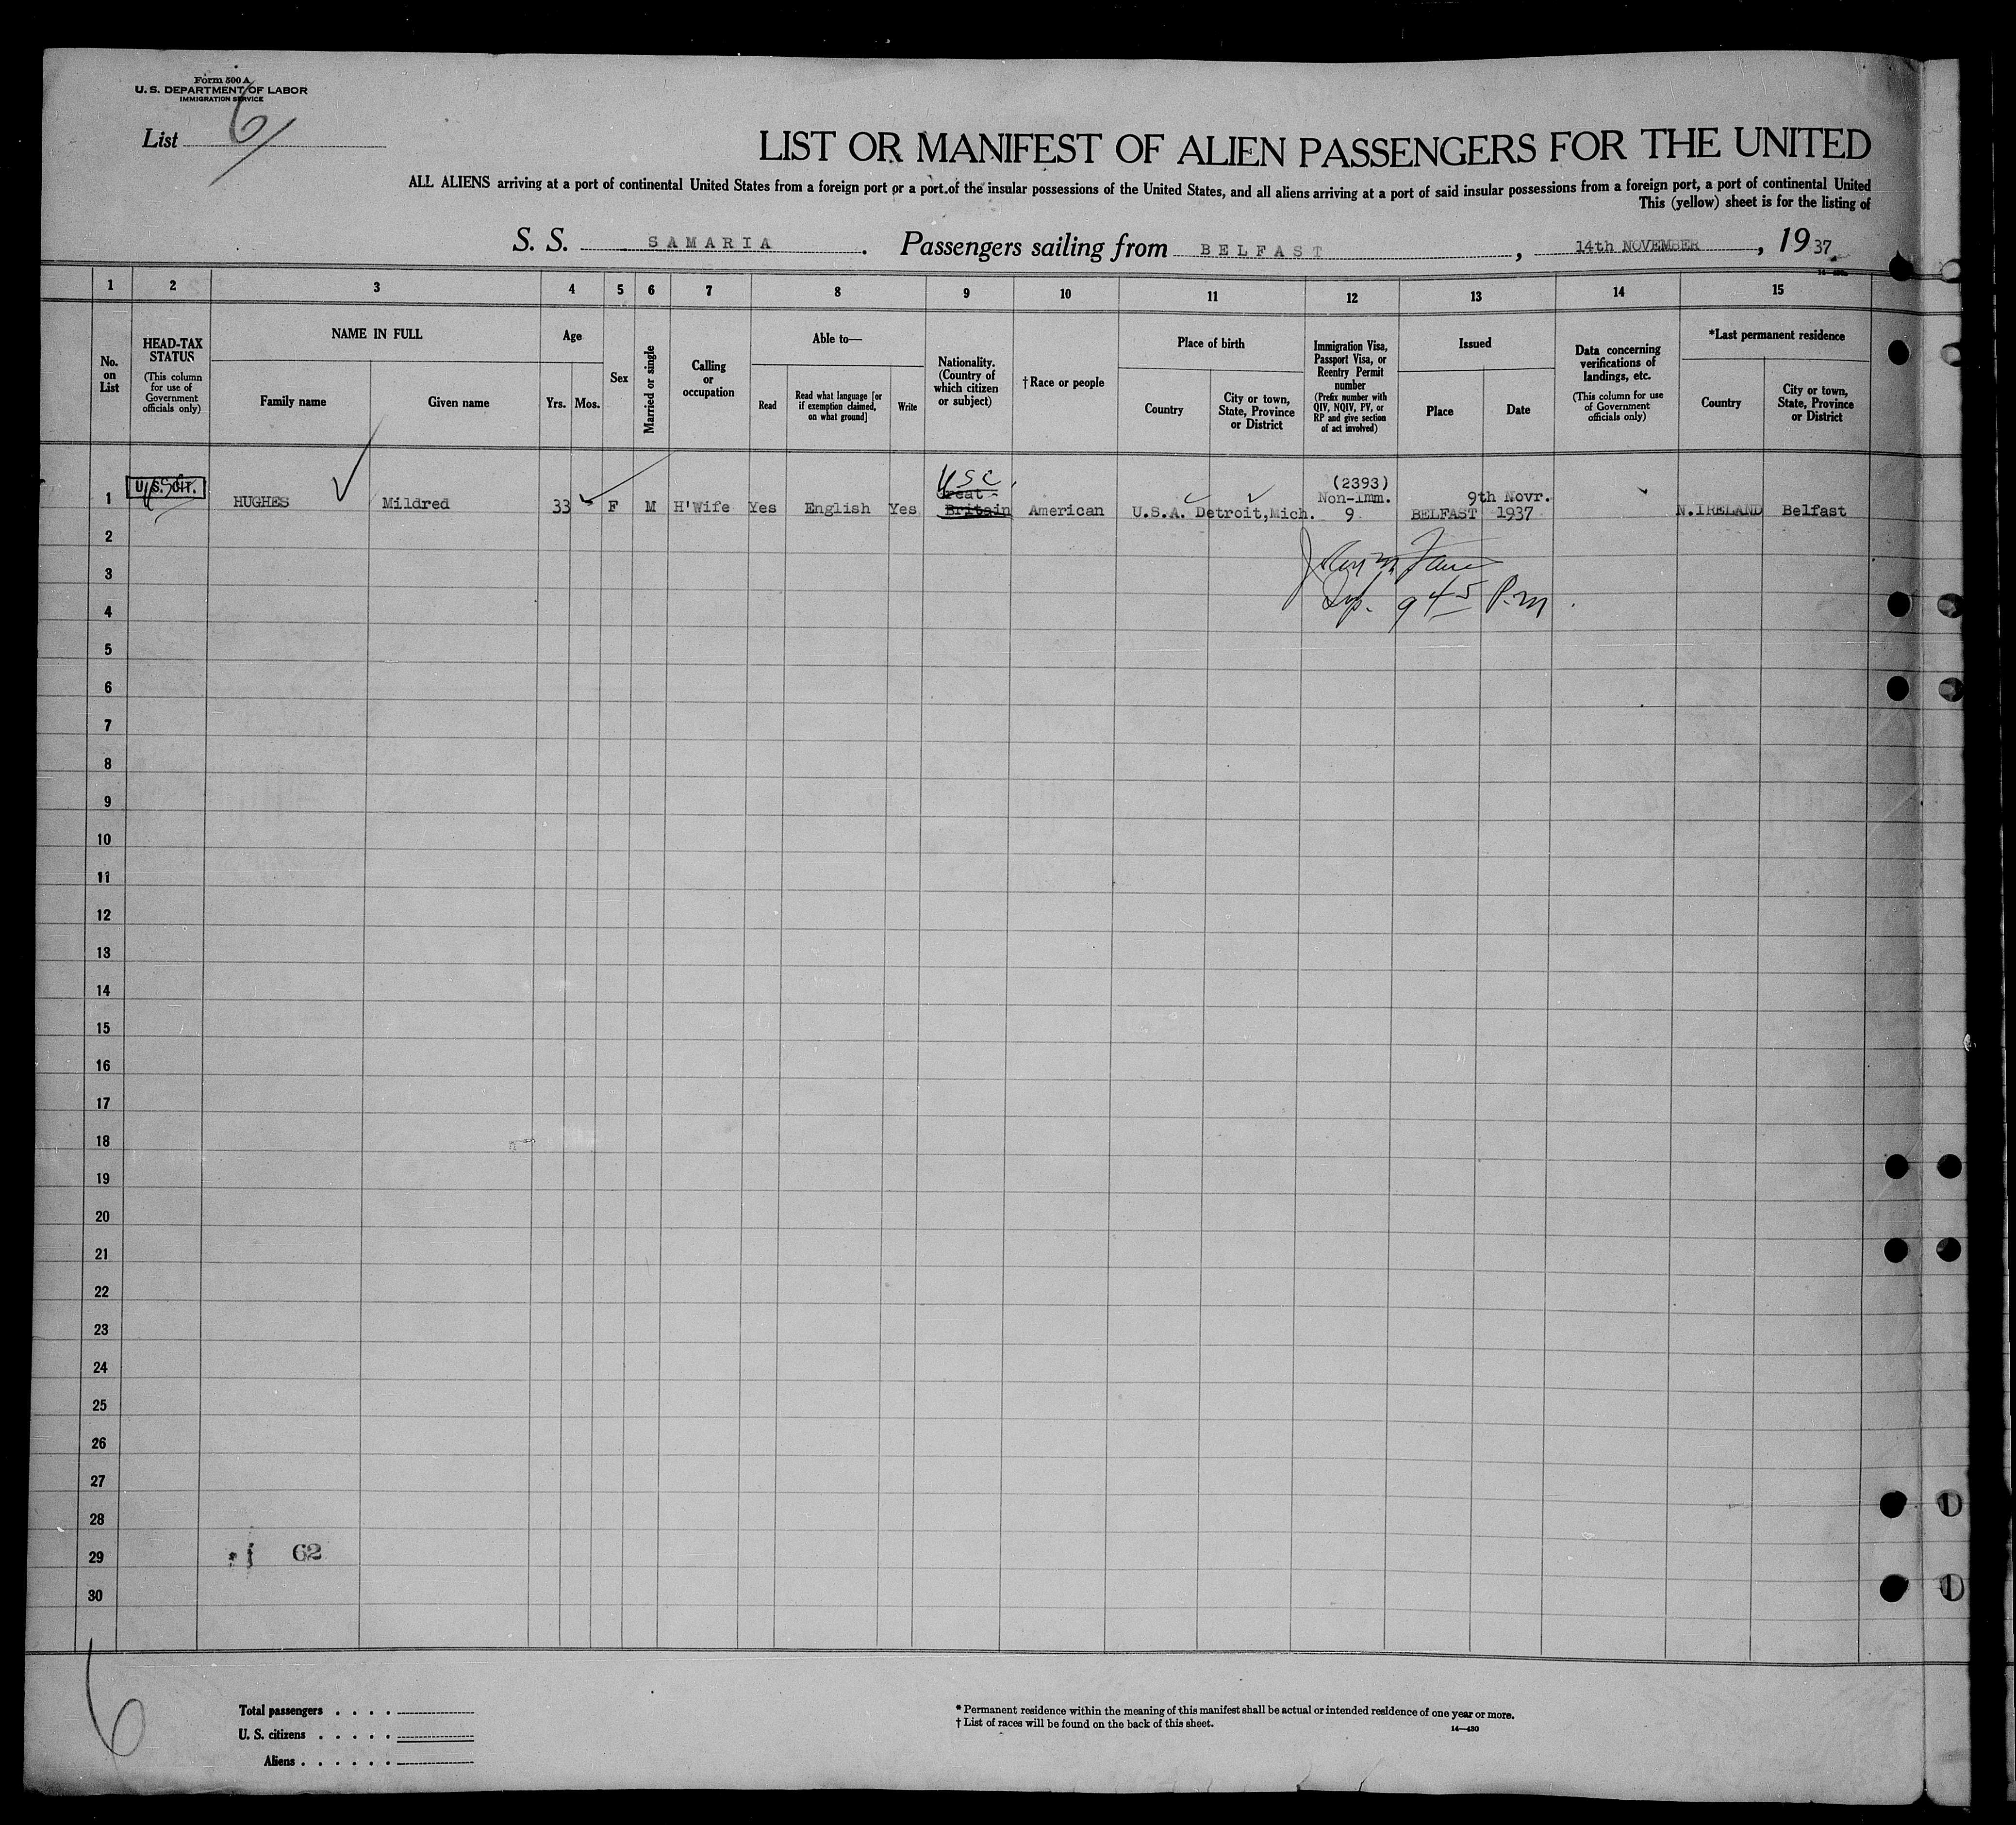 Form 500 A
U. S. DEPARTMENT OF LABOR
IMMIGRATION SERVICE
List 6
LIST OR MANIFEST OF ALIEN PASSENGERS FOR THE UNITED
ALL ALIENS arriving at a port of continental United States from a foreign port or a port of the insular possessions of the United States, and all aliens arriving at a port of said insular possessions from a foreign port, a port of continental United
This (yellow) sheet is for the listing of
S. S. SAMARIA. Passengers sailing from BELFAST, 14th NOVEMBER, 1937
1 2 3 4 5 6 7 8 9 10 11 12 13 14 15
No. on List
HEAD-TAX STATUS
(This column for use of Government officials only)
NAME IN FULL
Family name
Given name
Age
Yrs.
Mos.
Sex
Married or single
Calling or occupation
Able to—
Read
Read what language [or if exemption claimed, on what ground]
Write
Nationality. (Country of which citizen or subject)
†Race or people
Place of birth
Country
City or town, State, Province or District
Immigration Visa, Passport Visa, or Reentry Permit number
(Prefix number with QIV, NQIV, PV, or RP and give section of act involved)
Issued
Place
Date
Data concerning verifications of landings, etc.
(This column for use of Government officials only)
*Last permanent residence
Country
City or town, State, Province or District
USC
(2393)
U.S. CIT.
Great-
Non-Imm.
9th Novr.
1 HUGHES Mildred 33 F M H'Wife Yes English Yes Britain American U.S.A. Detroit,Mich. 9 BELFAST 1937 N.IRELAND Belfast
2
3
945 P.M.
4
5
6
7
8
9
10
11
12
13
14
15
16
17
18
19
20
21
22
23
24
25
26
27
28
29 62
30
6
Total passengers . . . .
U. S. citizens . . . . .
Aliens . . . . . .
* Permanent residence within the meaning of this manifest shall be actual or intended residence of one year or more.
† List of races will be found on the back of this sheet.
14—430